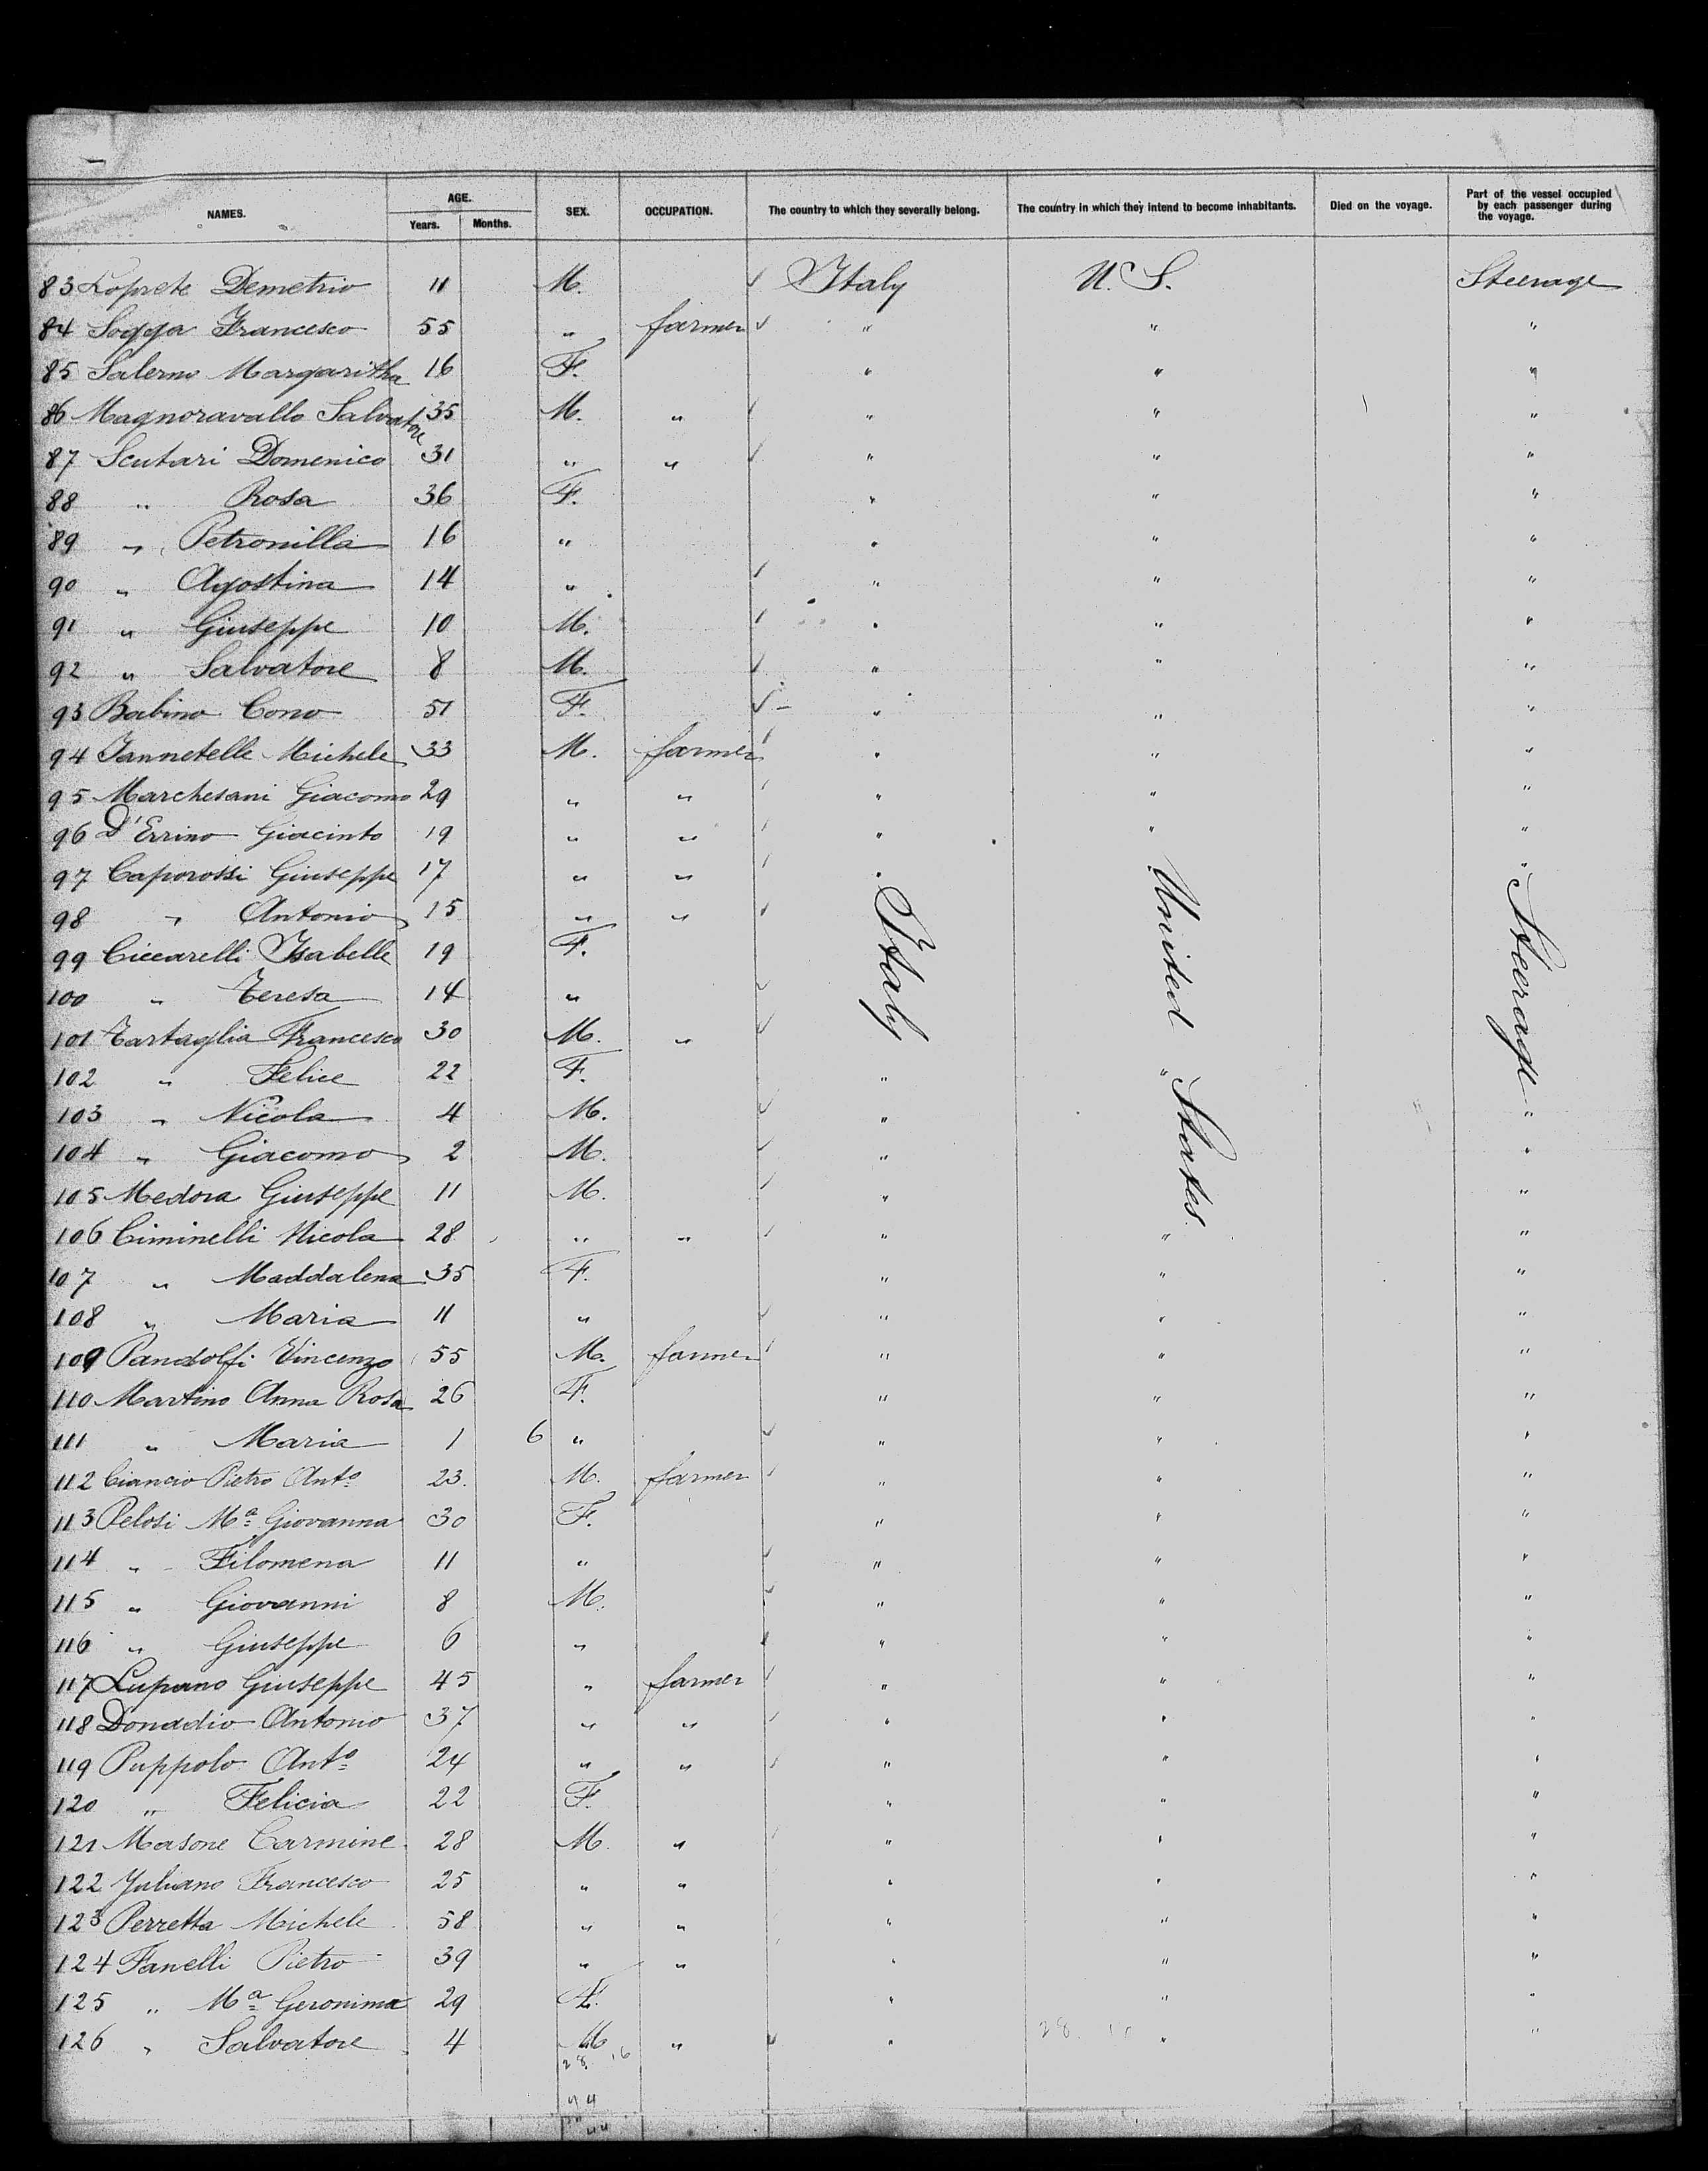 NAMES. AGE. Years. Months. SEX. OCCUPATION. The country to which they severally belong. The country in which they intend to become inhabitants. Died on the voyage. Part of the vessel occupied by each passenger during the voyage.
83 Loprete Demetrio 11 M. ✓ Italy U.S. Steerage
84 Sogga Francesco 55 " farmer ✓ " " "
85 Salerno Margaritha 16 F. " " "
86 Magnoravallo Salvatore 35 M. " ✓ " " "
87 Scutari Domenico 31 " " ✓ " " "
88 " Rosa 36 F. " " "
89 " Petronilla 16 " " " "
90 " Agostina 14 " ✓ " " "
91 " Giuseppe 10 M. ✓ " " "
92 " Salvatore 8 M. ✓ " " "
93 Babino Cono 51 F. ✓ " " "
94 Iannetelle Michele 33 M. farmer ✓ " " "
95 Marchesani Giacomo 29 " " ✓ " " "
96 D'Errino Giacinto 19 " " ✓ " " "
97 Caporossi Giuseppe 17 " " ✓ " "
98 " Antonio 15 " " ✓ Italy United States Steerage
99 Ciccarelli Isabelle 19 F.
100 " Teresa 14 " ✓
101 Tartaglia Francesco 30 M. " ✓
102 " Felice 22 F. " "
103 " Nicola 4 M. ✓ " "
104 " Giacomo 2 M. ✓ " "
105 Medora Giuseppe 11 M. ✓ " "
106 Ciminelli Nicola 28 " " ✓ " " "
107 " Maddalena 35 F. " " "
108 " Maria 11 " ✓ " " "
109 Pandolfi Vincenzo 55 M. farmer ✓ " " "
110 Martino Anna Rosa 26 F. " " "
111 " Maria 1 6 " ✓ " " "
112 Ciancio Pietro Anto 23. M. farmer ✓ " " "
113 Pelosi Ma Giovanna 30 F. " " "
114 " Filomena 11 " ✓ " " "
115 " Giovanni 8 M. ✓ " " "
116 " Giuseppe 6 " ✓ " " "
117 Lupano Giuseppe 45 " farmer ✓ " " "
118 Donadio Antonio 37 " " ✓ " " "
119 Puppolo Anto 24 " " ✓ " " "
120 " Felicia 22 F. " " "
121 Masone Carmine 28 M. " " " "
122 Juliano Francesco 25 " " " " "
123 Perretta Michele 58 " " " " "
124 Fanelli Pietro 39 " " " " "
125 " Ma Geronima 29 F. " " "
126 " Salvatore 4 M " ✓ " " "
28 16
44
44